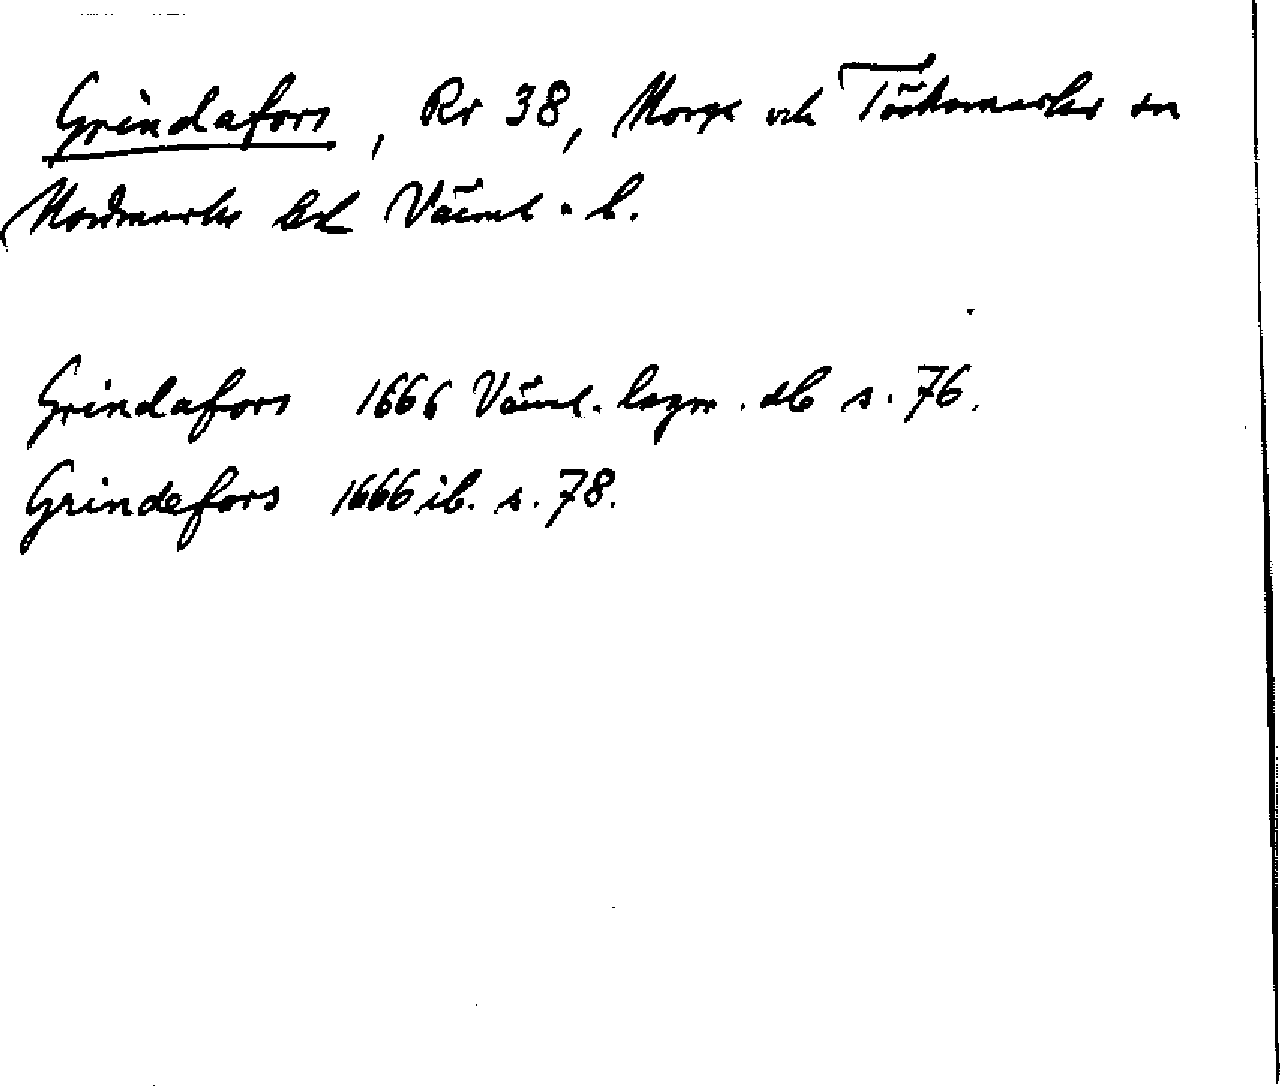 Grindafors, Rr 38, Norge och Töcksmarks sn
Nordmarks hd Värml. l.
Grindafors 1666 Värml. lagm. db s. 76.
Grindefors 1666 ib. s. 78.